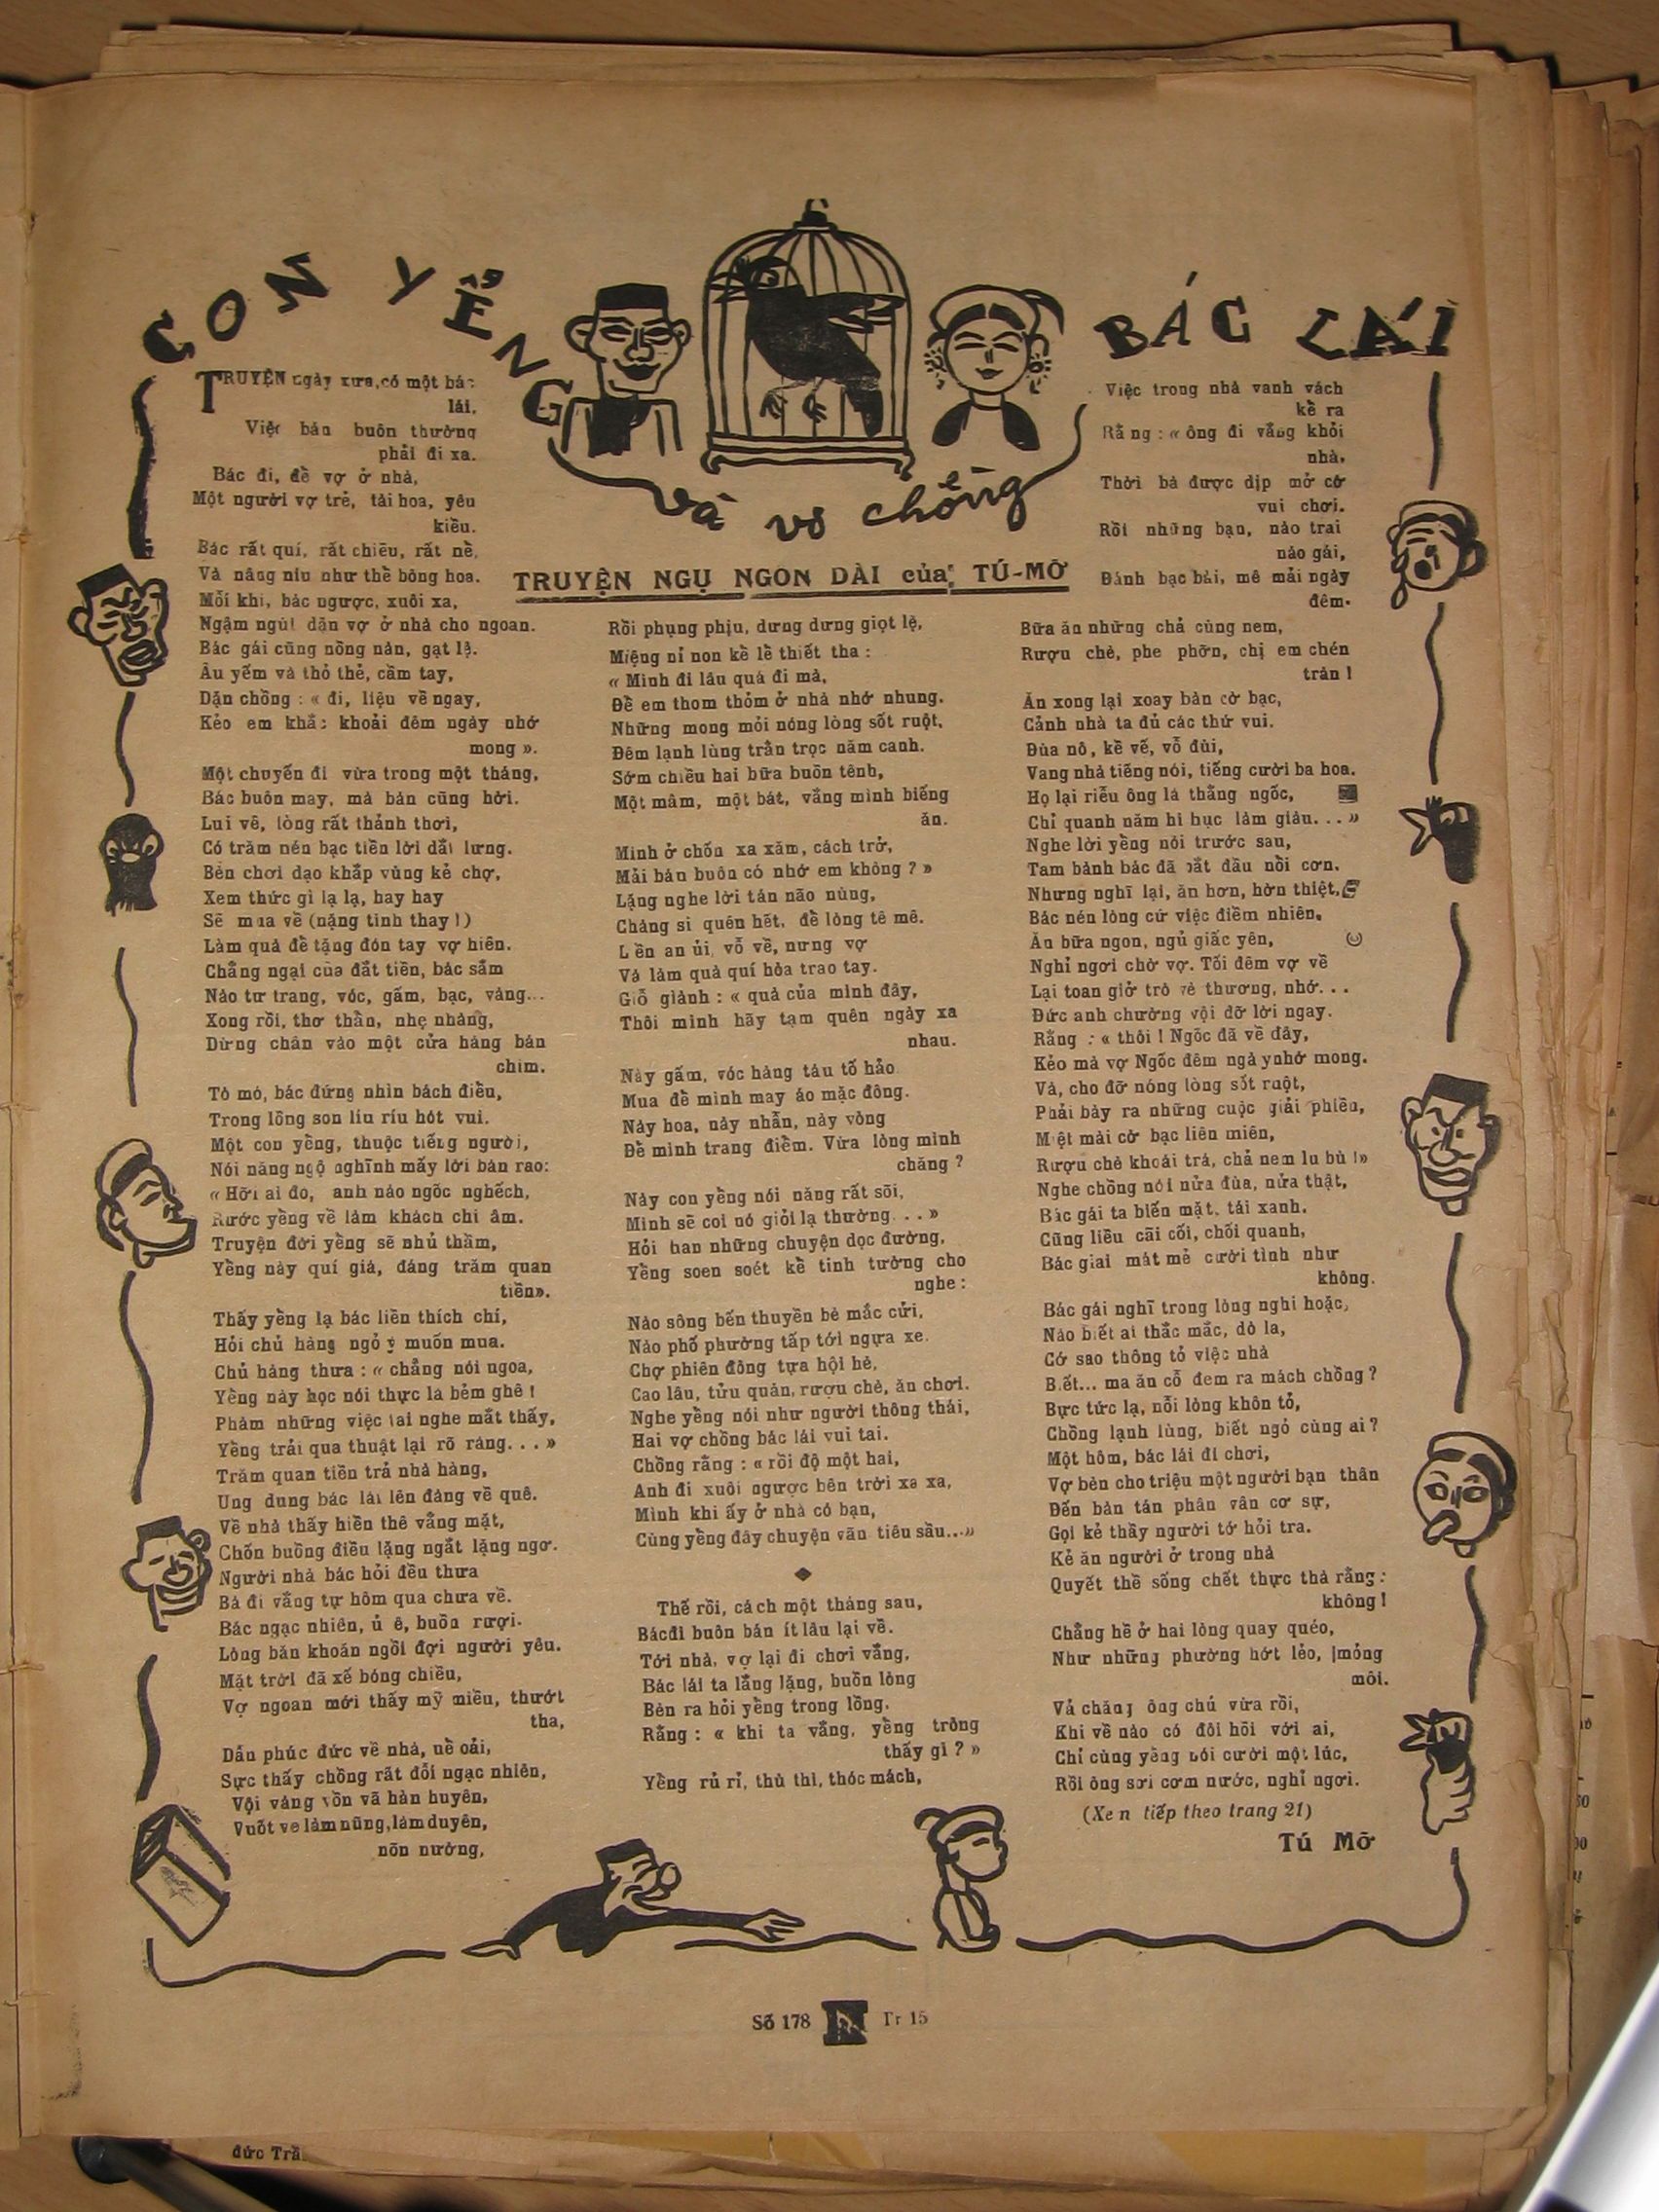 CON YỂNG
và vợ chồng
BÁC LÁI
TRUYỆN NGỤ NGÔN DÀI của TÚ-MỠ
TRUYỆN ngày xưa, có một bác
lái,
Việc bán buôn thường
phải đi xa.
Bác đi, để vợ ở nhà,
Một người vợ trẻ, tài hoa, yêu
kiều.
Bác rất quí, rất chiều, rất nể,
Và nâng niu như thể bông hoa.
Mỗi khi, bác ngược, xuôi xa,
Ngậm ngùi dặn vợ ở nhà cho ngoan.
Bác gái cũng nồng nàn, gạt lệ.
Âu yếm và thỏ thẻ, cầm tay,
Dặn chồng : « đi, liệu về ngay,
Kẻo em khắc khoải đêm ngày nhớ
mong ».
Một chuyến đi vừa trong một tháng,
Bác buôn may, mà bán cũng hời.
Lui về, lòng rất thảnh thơi,
Có trăm nén bạc tiền lời dắt lưng.
Bèn chơi dạo khắp vùng kẻ chợ,
Xem thức gì lạ lạ, hay hay
Sẽ mua về (nặng tình thay !)
Làm quà để tặng đón tay vợ hiền.
Chẳng ngại của đắt tiền, bác sắm
Nào tư trang, vóc, gấm, bạc, vàng...
Xong rồi, thơ thẩn, nhẹ nhàng,
Dừng chân vào một cửa hàng bán
chim.
Tò mò, bác đứng nhìn bách điểu,
Trong lồng son líu ríu hót vui.
Một con yểng, thuộc tiếng người,
Nói năng ngộ nghĩnh mấy lời bán rao:
« Hỡi ai đo, anh nào ngốc nghếch,
Rước yểng về làm khách chi âm.
Truyện đời yểng sẽ nhủ thầm,
Yểng này quí giá, đáng trăm quan
tiền».
Thấy yểng lạ bác liền thích chí,
Hỏi chủ hàng ngỏ ý muốn mua.
Chủ hàng thưa : « chẳng nói ngoa,
Yểng này học nói thực là bẻm ghê !
Phàm những việc tai nghe mắt thấy,
Yểng trải qua thuật lại rõ ràng. . . »
Trăm quan tiền trả nhà hàng,
Ung dung bác lái lên đàng về quê.
Về nhà thấy hiền thê vắng mặt,
Chốn buồng điều lặng ngắt lặng ngơ.
Người nhà bác hỏi đều thưa
Bà đi vắng tự hôm qua chưa về.
Bác ngạc nhiên, ủ ê, buồn rượi.
Lòng băn khoăn ngồi đợi người yêu.
Mặt trời đã xế bóng chiều,
Vợ ngoan mới thấy mỹ miều, thướt
tha,
Dẫn phúc đức về nhà, uể oải,
Sực thấy chồng rất đỗi ngạc nhiên,
Vội vàng vồn vã hàn huyên,
Vuốt ve làm nũng,làm duyên,
nõn nường,
Rồi phụng phịu, dưng dưng giọt lệ,
Miệng nỉ non kể lể thiết tha :
« Mình đi lâu quá đi mà,
Để em thom thỏm ở nhà nhớ nhung.
Những mong mỏi nóng lòng sốt ruột,
Đêm lạnh lùng trằn trọc năm canh.
Sớm chiều hai bữa buồn tênh,
Một mâm, một bát, vắng mình biếng
ăn.
Mình ở chốn xa xăm, cách trở,
Mải bán buôn có nhớ em không ? »
Lặng nghe lời tán não nùng,
Chàng si quên hết, để lòng tê mê.
Lên an ủi, vỗ về, nưng vợ
Và làm quà quí hóa trao tay.
Giỗ giành : « quà của mình đây,
Thôi mình hãy tạm quên ngày xa
nhau.
Này gấm, vóc hàng tàu tố hảo
Mua để mình may áo mặc đông.
Này hoa, này nhẫn, này vòng
Để mình trang điểm. Vừa lòng mình
chăng ?
Này con yểng nói năng rất sõi,
Mình sẽ coi nó giỏi lạ thường. . . »
Hỏi han những chuyện dọc đường,
Yểng soen soét kể tinh tường cho
nghe :
Nào sông bến thuyền bè mắc cửi,
Nào phố phường tấp tới ngựa xe.
Chợ phiên đông tựa hội hè,
Cao lâu, tửu quán, rượu chè, ăn chơi.
Nghe yểng nói như người thông thái,
Hai vợ chồng bác lái vui tai.
Chồng rằng : « rồi độ một hai,
Anh đi xuôi ngược bên trời xa xa,
Mình khi ấy ở nhà có bạn,
Cùng yểng đây chuyện vãn tiêu sầu...»
Thế rồi, cách một tháng sau,
Bác đi buôn bán ít lâu lại về.
Tới nhà, vợ lại đi chơi vắng,
Bác lái ta lẳng lặng, buồn lòng
Bèn ra hỏi yểng trong lồng.
Rằng : « khi ta vắng, yểng trông
thấy gì ? »
Yểng rủ rỉ, thủ thỉ, thóc mách,
Việc trong nhà vanh vách
kể ra
Rằng : « ông đi vắng khỏi
nhà.
Thời bà được dịp mở cờ
vui chơi.
Rồi những bạn, nào trai
nào gái,
Đánh bạc bài, mê mải ngày
đêm.
Bữa ăn những chả cùng nem,
Rượu chè, phe phỡn, chị em chén
tràn !
Ăn xong lại xoay bàn cờ bạc,
Cảnh nhà ta đủ các thứ vui.
Đùa nô, kề vế, vỗ đùi,
Vang nhà tiếng nói, tiếng cười ba hoa.
Họ lại riễu ông là thằng ngốc,
Chỉ quanh năm hì hục làm giàu. . . »
Nghe lời yểng nói trước sau,
Tam bành bác đã bắt đầu nổi cơn.
Nhưng nghĩ lại, ăn hơn, hờn thiệt,
Bác nén lòng cứ việc điềm nhiên,
Ăn bữa ngon, ngủ giấc yên,
Nghỉ ngơi chờ vợ. Tối đêm vợ về
Lại toan giở trò vẻ thương, nhớ. . .
Đức anh chường vội đỡ lời ngay.
Rằng : « thôi ! Ngốc đã về đây,
Kẻo mà vợ Ngốc đêm ngày nhớ mong.
Và, cho đỡ nóng lòng sốt ruột,
Phải bày ra những cuộc giải phiền,
Miệt mài cờ bạc liên miên,
Rượu chè khoái trá, chả nem lu bù !»
Nghe chồng nói nửa đùa, nửa thật,
Bác gái ta biến mặt, tái xanh.
Cũng liều cãi cối, chối quanh,
Bác giai mát mẻ cười tình như
không.
Bác gái nghĩ trong lòng nghi hoặc,
Nào biết ai thắc mắc, dò la,
Cớ sao thông tỏ việc nhà
Biết... ma ăn cỗ đem ra mách chồng ?
Bực tức lạ, nỗi lòng khôn tỏ,
Chồng lạnh lùng, biết ngỏ cùng ai ?
Một hôm, bác lái đi chơi,
Vợ bèn cho triệu một người bạn thân
Đến bàn tán phân vân cơ sự,
Gọi kẻ thầy người tớ hỏi tra.
Kẻ ăn người ở trong nhà
Quyết thề sống chết thực thà rằng :
không !
Chẳng hề ở hai lòng quay quéo,
Như những phường hớt lẻo, mỏng
môi.
Vả chăng ông chủ vừa rồi,
Khi về nào có đôi hồi với ai,
Chỉ cùng yểng nói cười một lúc,
Rồi ông sơi cơm nước, nghỉ ngơi.
(Xem tiếp theo trang 21)
Tú Mỡ
Số 178 N Tr 15
đức Trầ